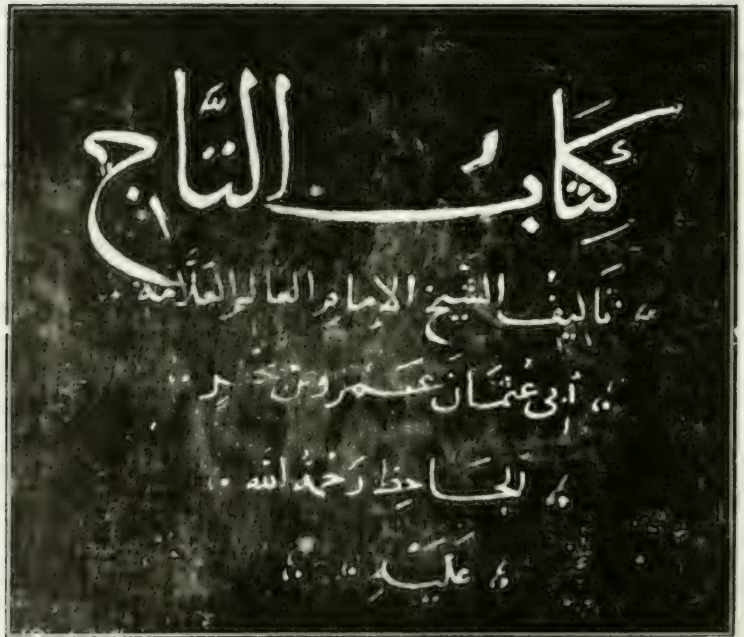 كِتَابُ التَّاج
تَأليفُ الشَّيخ الإمامِ العالم العَلَّامة
أبى عُثمَانَ عَمرو بن
الجَاحِظ رَحمَةُ الله
عَلَيْهِ